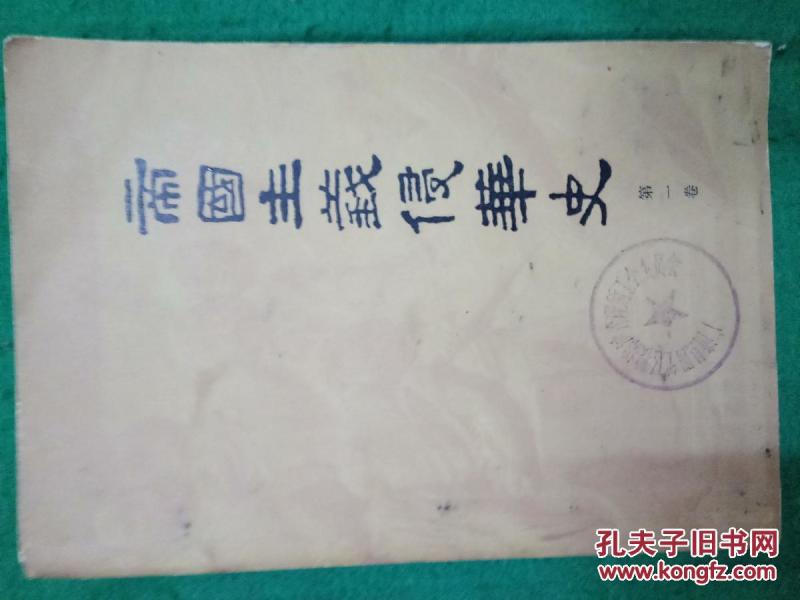 帝國主義侵華史
第一卷
孔夫子旧书网
www.kongfz.com